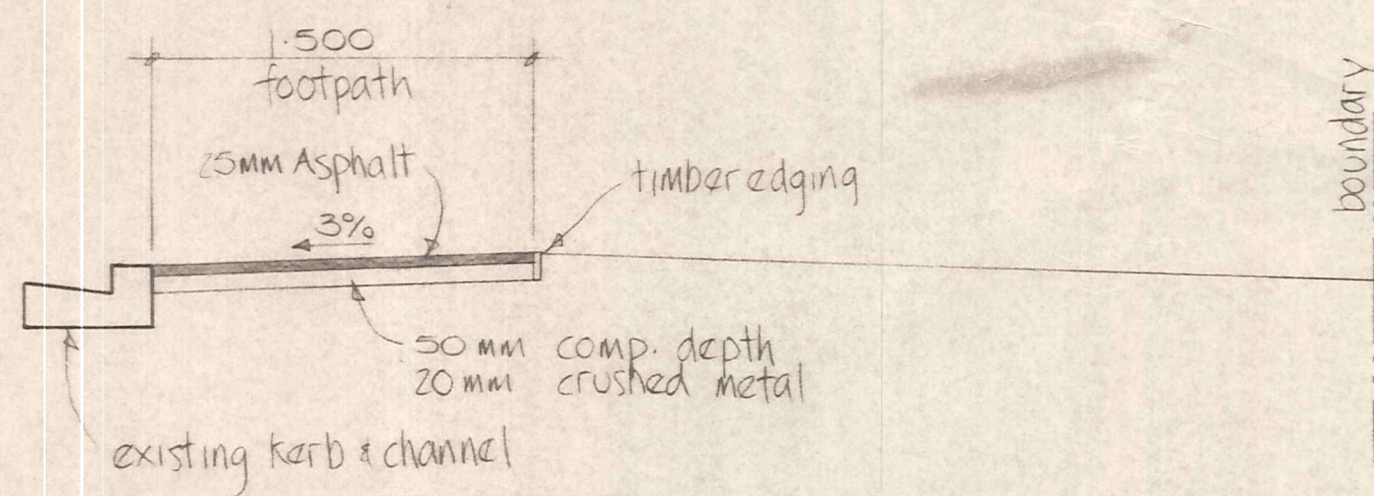 1.500
footpath
25mm Asphalt
timber edging
3%
boundary
50 mm comp. depth
20 mm crushed metal
existing kerb & channel